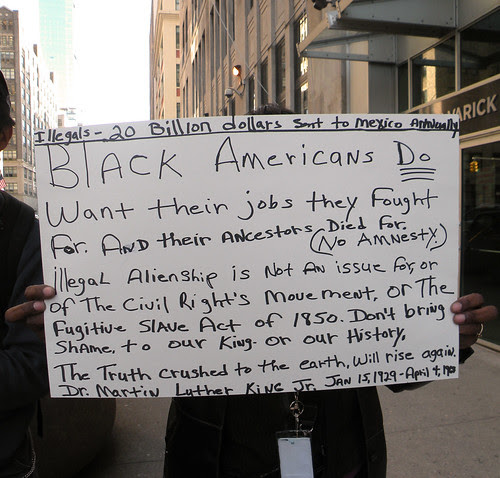 Illegals - 20 Billion dollars Sent to Mexico Annually
BLACK Americans Do
Want their jobs they Fought
For. AND their Ancestors Died for.
(No Amnesty.)
illegal Alienship is Not An issue for, or
of The Civil Right's Movement, or The
Fugitive Slave Act of 1850. Don't bring
Shame, to our King. or our History.
The Truth crushed to the earth, will rise again.
Dr. Martin Luther King Jr. JAN 15, 1929 - April 4, 1968
VARICK